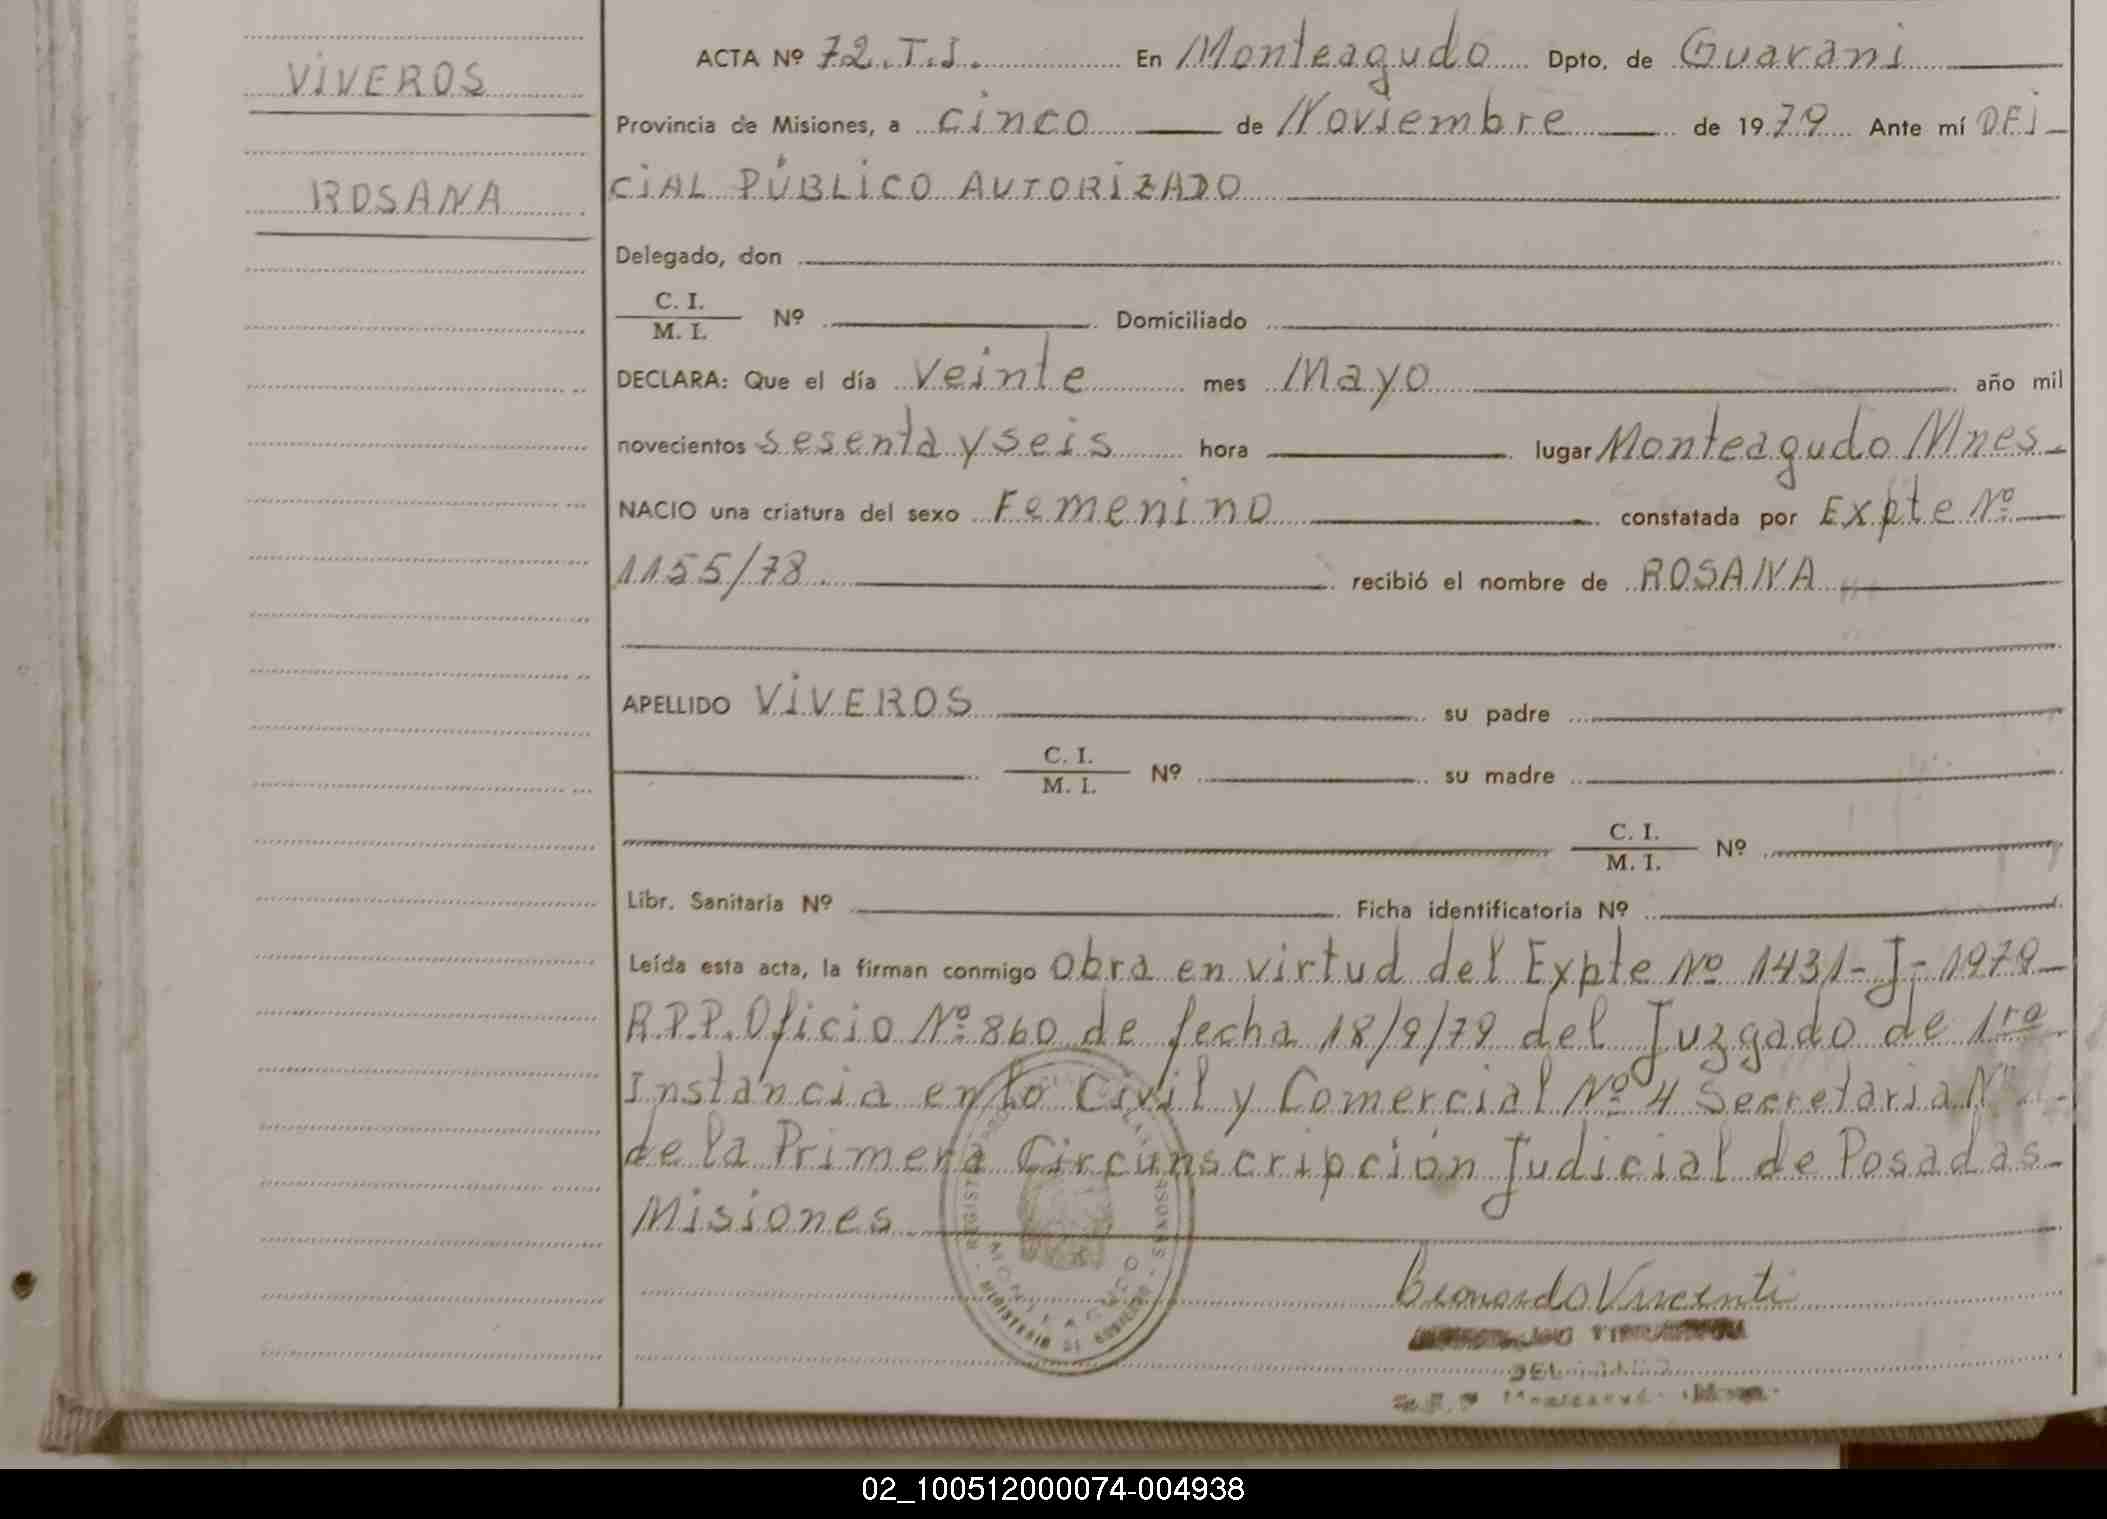 VIVEROS
ROSANA
ACTA Nº 72.T.I. En Monteagudo Dpto. de Guarani
Provincia de Misiones, a cinco de Noviembre de 1979 Ante mí OFI
CIAL PÚBLICO AUTORIZADO
Delegado, don
C. I.
M. I. Nº Domiciliado
DECLARA: Que el día veinte mes Mayo año mil
novecientos sesenta y seis hora lugar Monteagudo Mnes
NACIO una criatura del sexo Femenino constatada por Expte Nº
1155/78 recibió el nombre de ROSANA
APELLIDO VIVEROS su padre
C. I.
M. I. Nº su madre
C. I.
M. I. Nº
Libr. Sanitaria Nº Ficha identificatoria Nº
Leída esta acta, la firman conmigo obra en virtud del Expte Nº 1431-J-1979
R.P.P. Oficio Nº 860 de fecha 18/9/79 del Juzgado de 1ra
Instancia en lo Civil y Comercial Nº 4 Secretaria
de la Primera Circunscripción Judicial de Posadas
Misiones
REGISTRO PERSONAS
MONTEAGUDO
MINISTERIO DE GOBIERNO
02_100512000074-004938